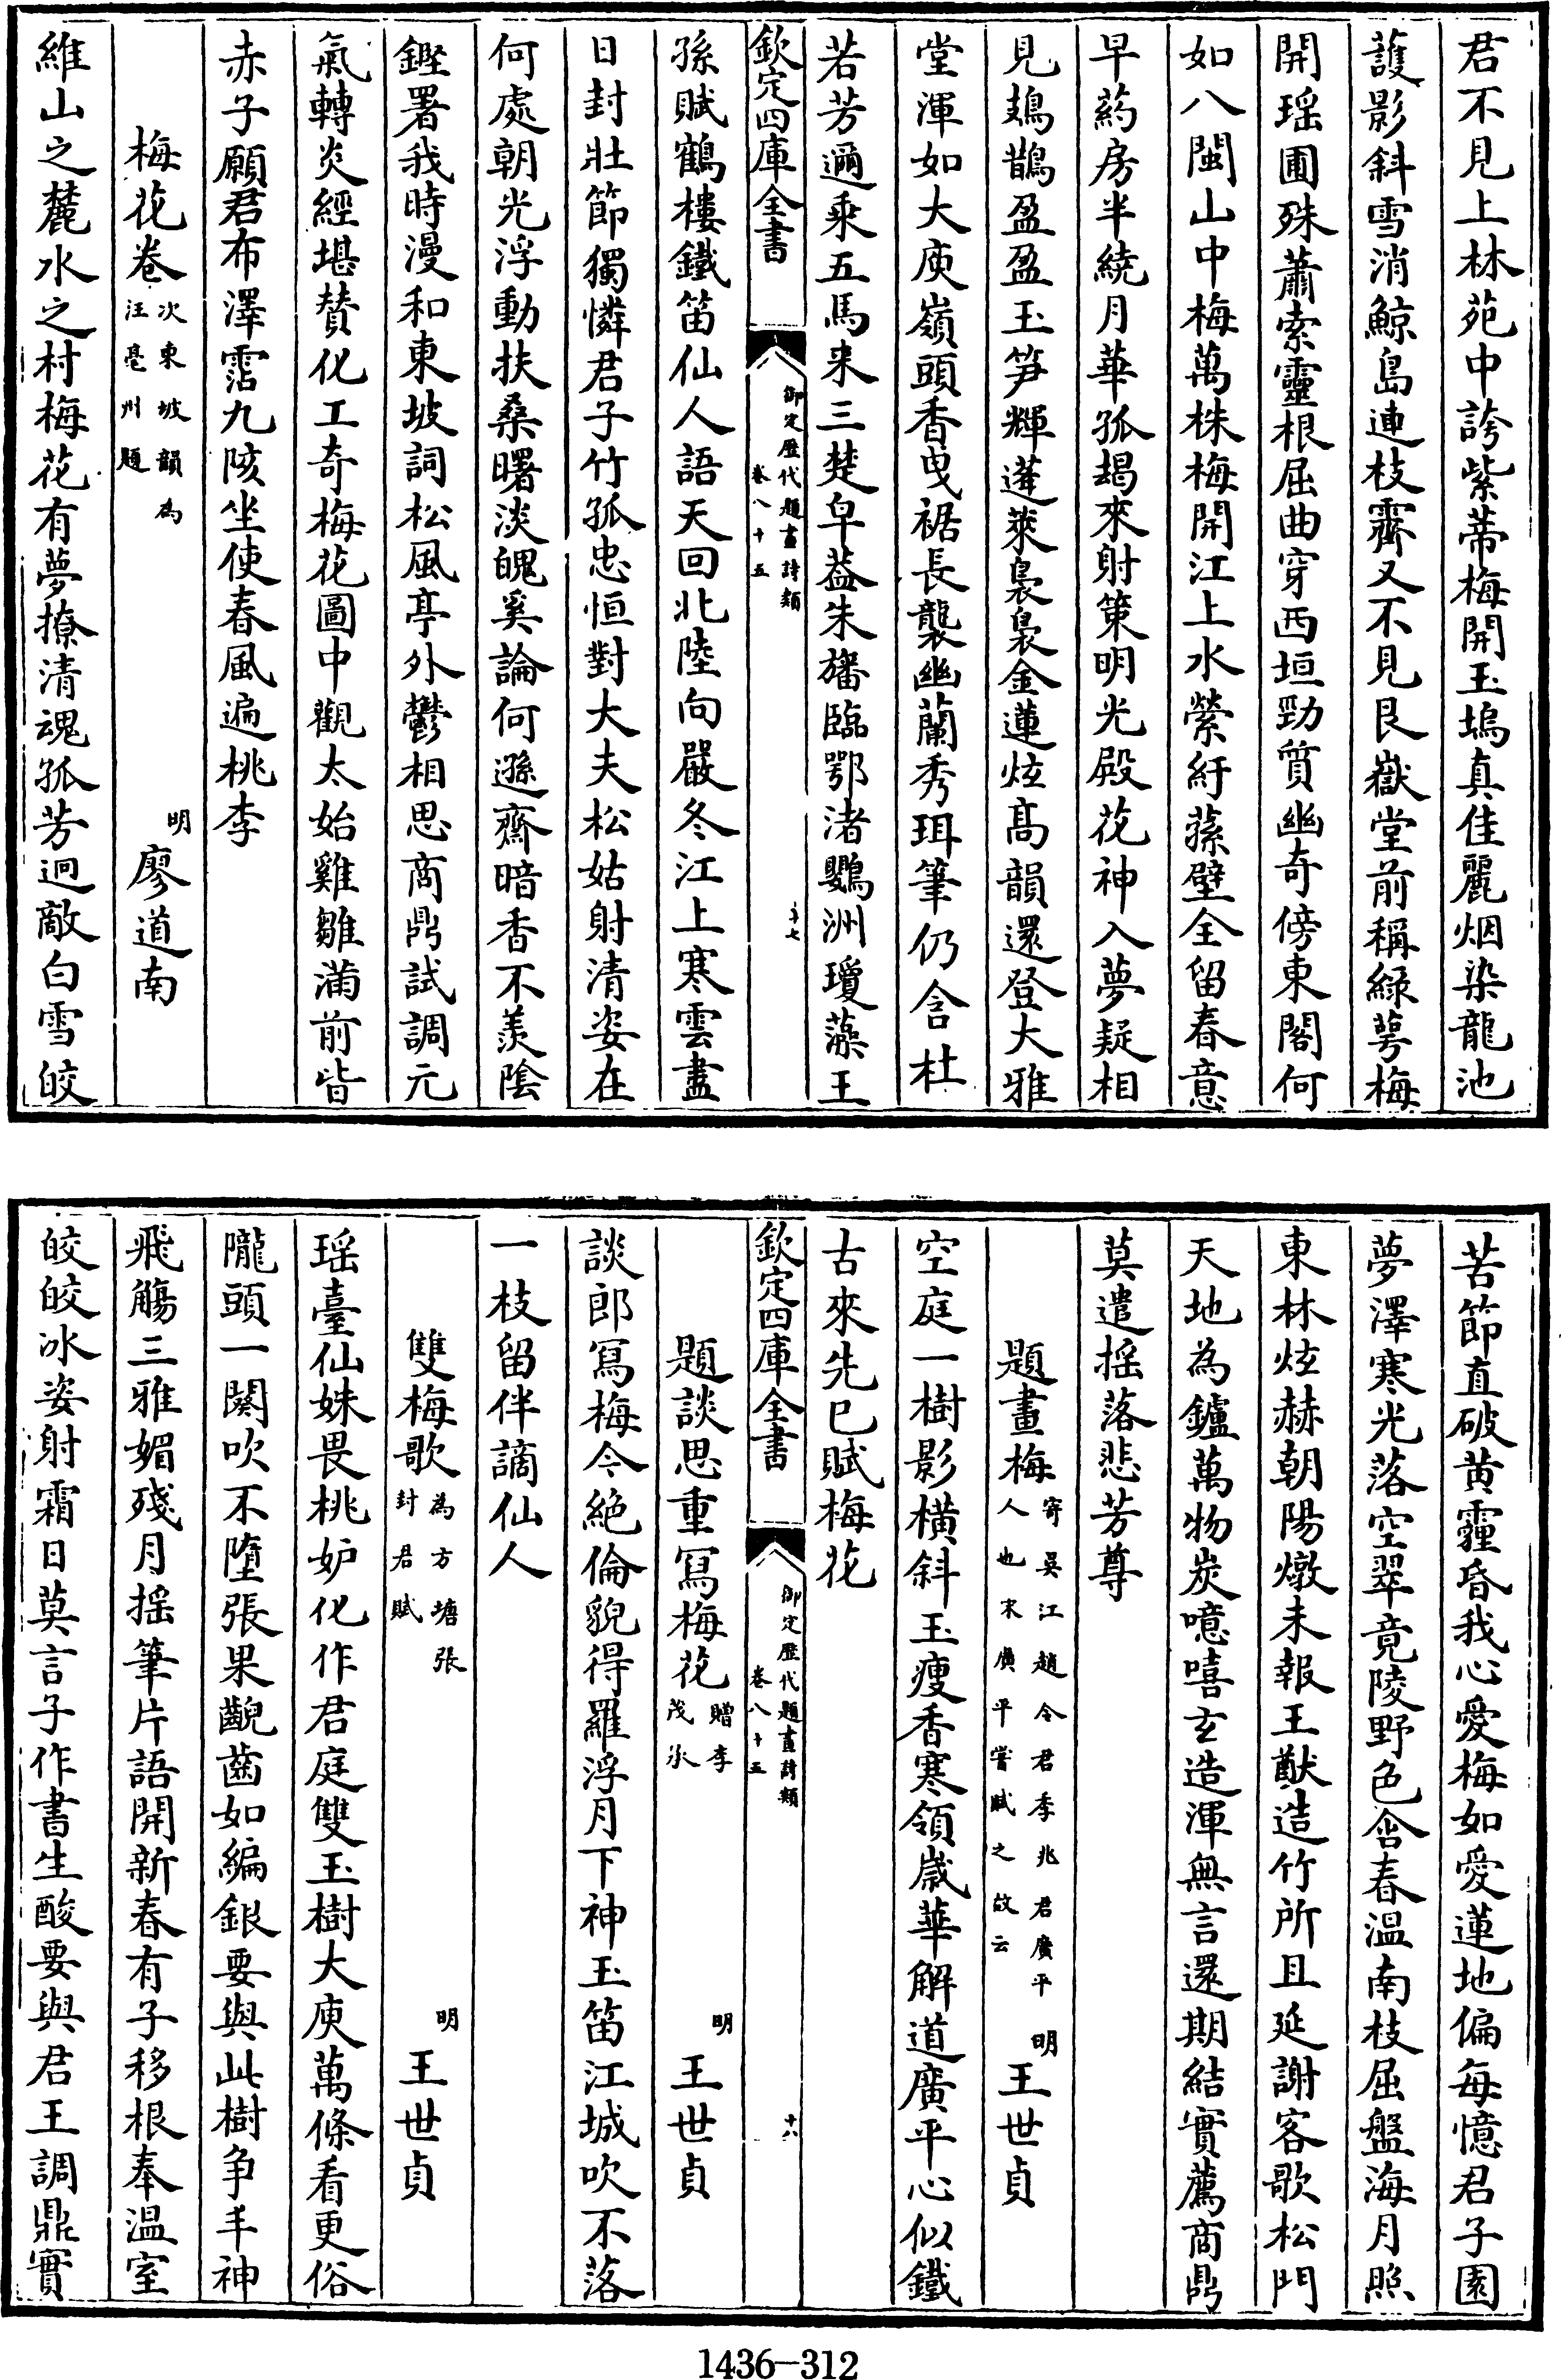 君不見上林苑中誇紫蒂梅開玉塢真佳麗烟染龍池
護影斜雪消鯨島連枝霽又不見艮嶽堂前稱綠萼梅
開瑶圃殊蕭索靈根屈曲穿西垣勁質幽奇傍東閣何
如八閩山中梅萬株梅開江上水縈紆蓀壁全留春意
早葯房半繞月華孤朅來射策明光殿花神入夢疑相
見鳷鵲盈盈玉笋輝蓬萊裊裊金蓮炫髙韻還登大雅
堂渾如大庾嶺頭香曳裾長襲幽蘭秀珥筆仍含杜
若芳邇乘五馬来三楚皁葢朱旛臨鄂渚鸚洲瓊藻王
欽定四庫全書
御定歷代題畫詩類
卷八十五
十七
孫賦鶴樓鐵笛仙人語天回北陸向嚴冬江上寒雲盡
日封壯節獨憐君子竹孤忠恒對大夫松姑射清姿在
何處朝光浮動扶桑曙淡魄奚論何遜齋暗香不羨陰
鏗署我時漫和東坡詞松風亭外鬱相思商鼎試調元
氣轉炎經堪贊化工奇梅花圖中觀太始雞雛滿前皆
赤子願君布澤霑九陔坐使春風遍桃李
梅花卷 次東坡韻為汪亳州題 明 廖道南
維山之麓水之村梅花有夢撩清魂孤芳迥敵白雪皎
苦節直破黄霾昏我心愛梅如愛蓮地偏每憶君子園
夢澤寒光落空翠竟陵野色含春温南枝屈盤海月照
東林炫赫朝陽燉未報王猷造竹所且延謝客歌松門
天地為鑪萬物炭噫嘻玄造渾無言還期結實薦商鼎
莫遣摇落悲芳尊
題畫梅 寄吳江趙令君季兆君廣平人也宋廣平嘗賦之故云 明 王世貞
空庭一樹影横斜玉瘦香寒領歲華解道廣平心似鐵
古來先已賦梅花
欽定四庫全書
御定歷代題畫詩類
卷八十五
十八
題談思重寫梅花 贈李茂承 明 王世貞
談郎寫梅今絶倫貌得羅浮月下神玉笛江城吹不落
一枝留伴謫仙人
雙梅歌 為方塘張封君賦 明 王世貞
瑶臺仙姝畏桃妒化作君庭雙玉樹大庾萬條看更俗
隴頭一闋吹不墮張果齯齒如編銀要與此樹争丰神
飛觴三雅媚殘月揺筆片語開新春有子移根奉温室
皎皎冰姿射霜日莫言子作書生酸要與君王調鼎實
1436-312